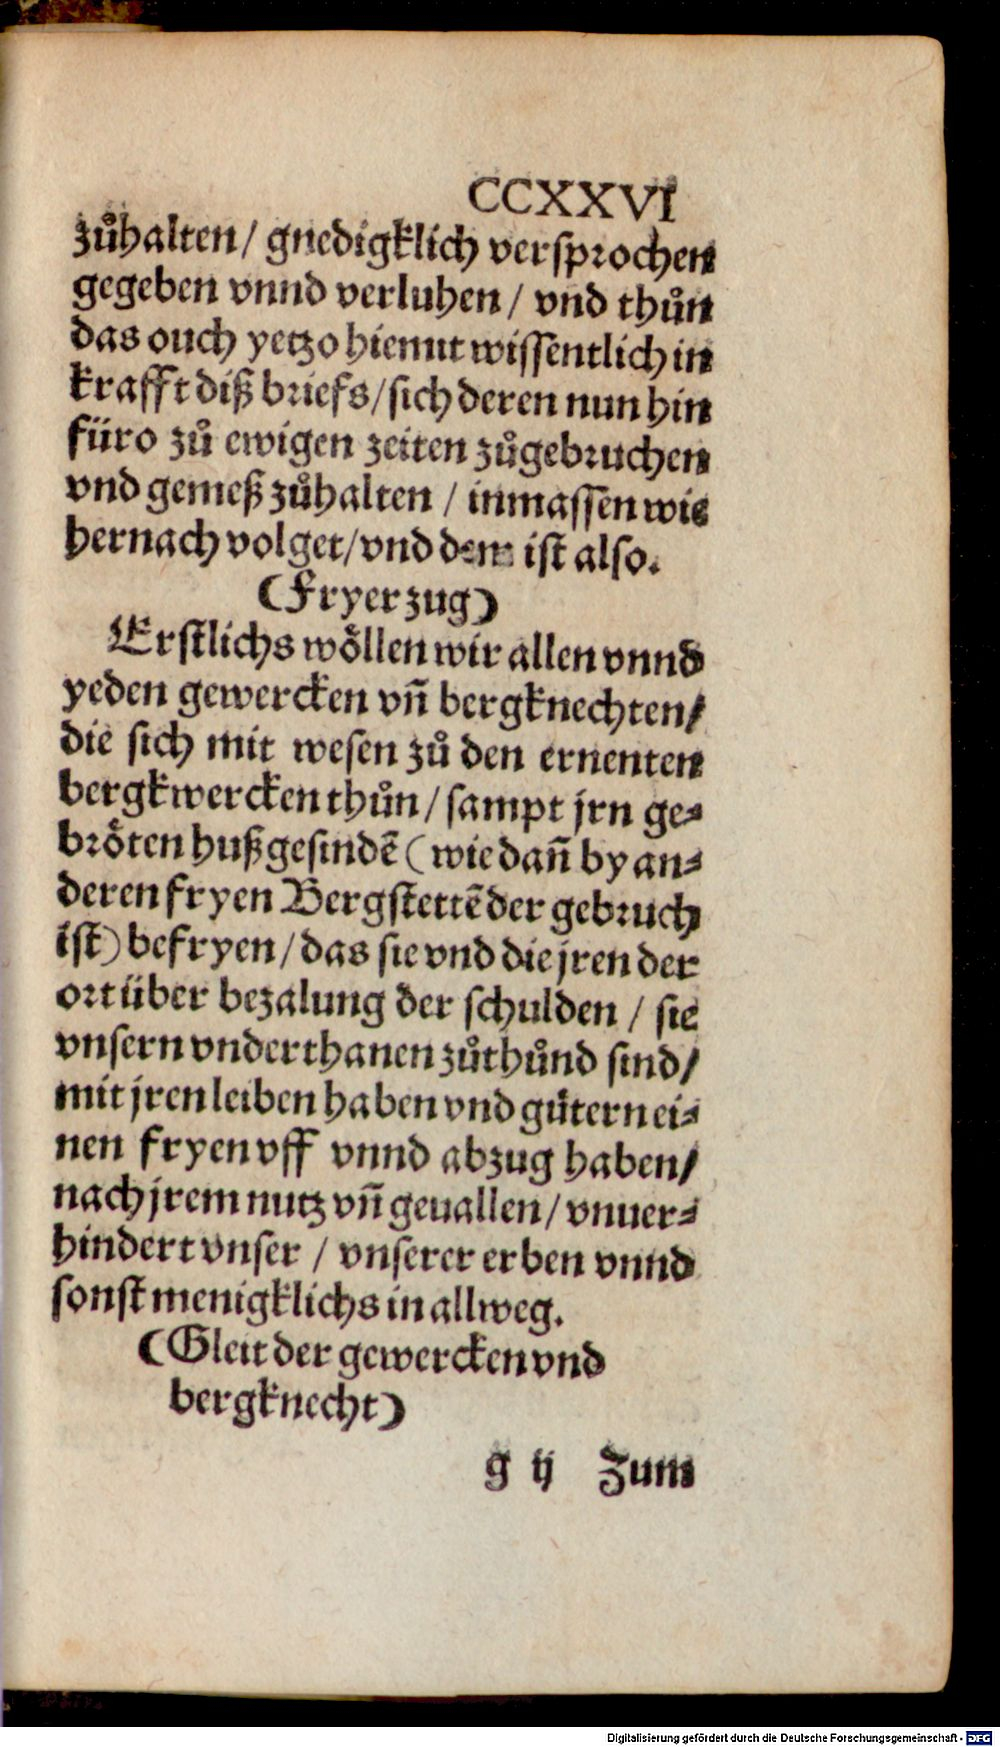 CCXXVI
zůhalten/ gnedigklich versprochen
gegeben vnnd verluhen / vnd thůn
das ouch yetzo hiemit wissentlich in
krafft diß briefs/sich deren nun hin
füro zů ewigen zeiten zůgebruchen
vnd gemeß zůhalten / inmassen wie
hernach volget/vnd dem ist also.
(Fryer zug)
Erstlichs wöllen wir allen vnnd
yeden gewercken vñ bergknechten/
die sich mit wesen zů den ernenten
bergkwercken thůn / sampt jrn ge⸗
bröten hußgesindē (wie dañ by an⸗
deren fryen Bergstettē der gebruch
ist) befryen/das sie vnd die jren der
ort über bezalung der schulden / sie
vnsern vnderthanen zůthůnd sind/
mit jren leiben haben vnd gütern ei⸗
nen fryen vff vnnd abzug haben/
nach jrem nutz vñ geuallen/ vnuer⸗
hindert vnser / vnserer erben vnnd
sonst menigklichs in allweg.
(Gleit der gewercken vnd
bergknecht)
g ij Zum
Digitalisierung gefördert durch die Deutsche Forschungsgemeinschaft - DFG